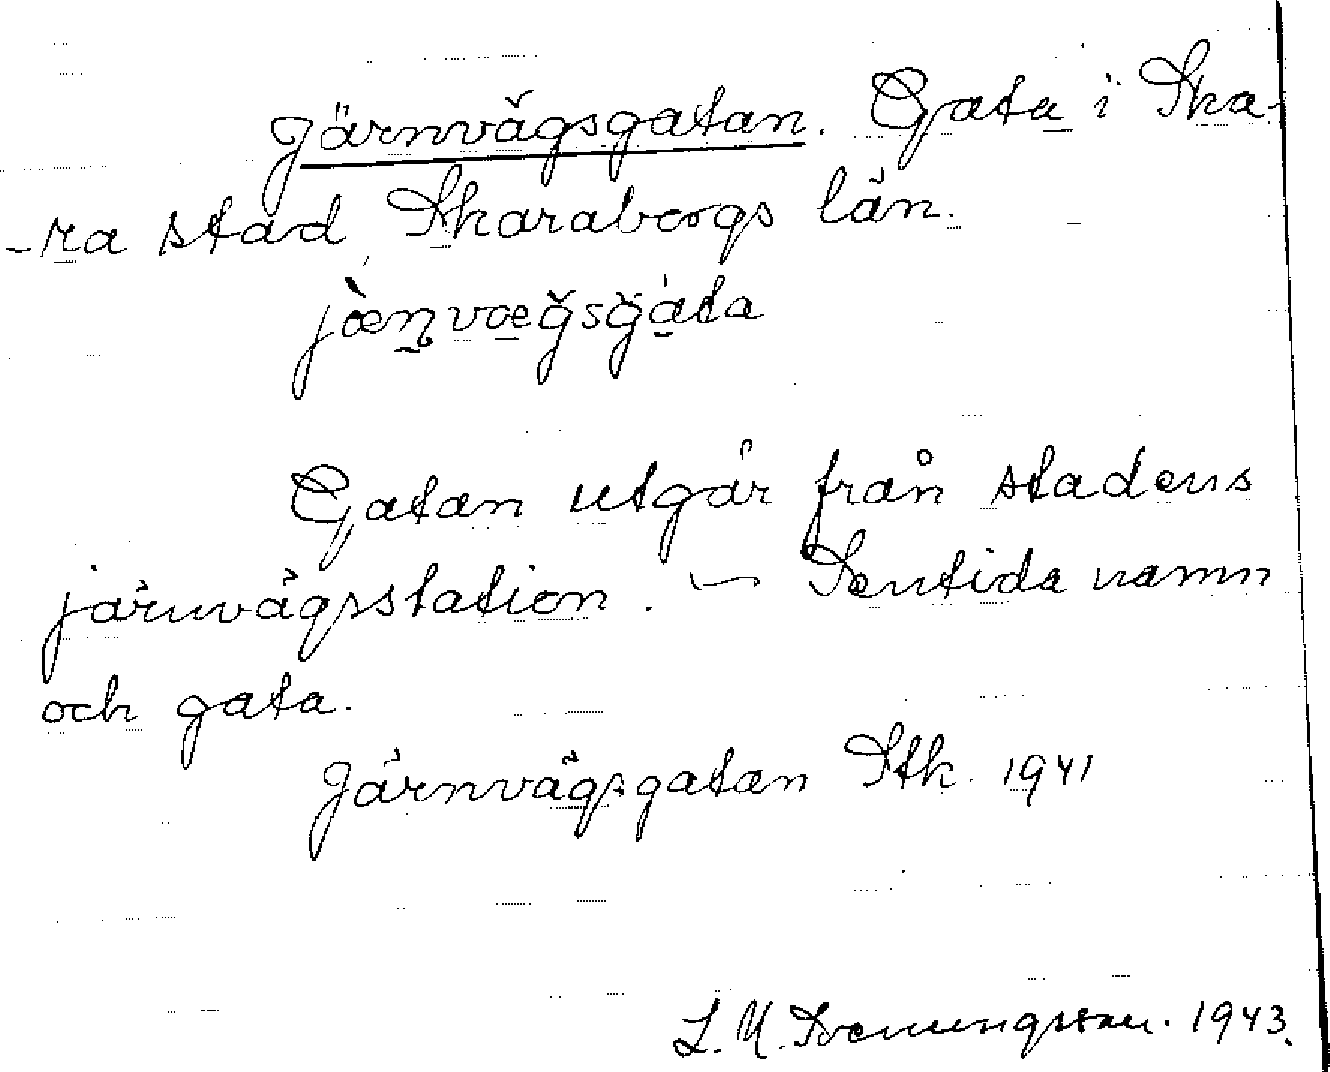 Järnvägsgatan. Gata i Ska-
-ra stad Skarabergs län.
jæ̀n̥væǧsǧàta
Gatan utgår från stadens
järnvägsstation. — Sentida namn
och gata.
Järnvägsgatan Stk. 1941
L. M. Svenungsson. 1943.